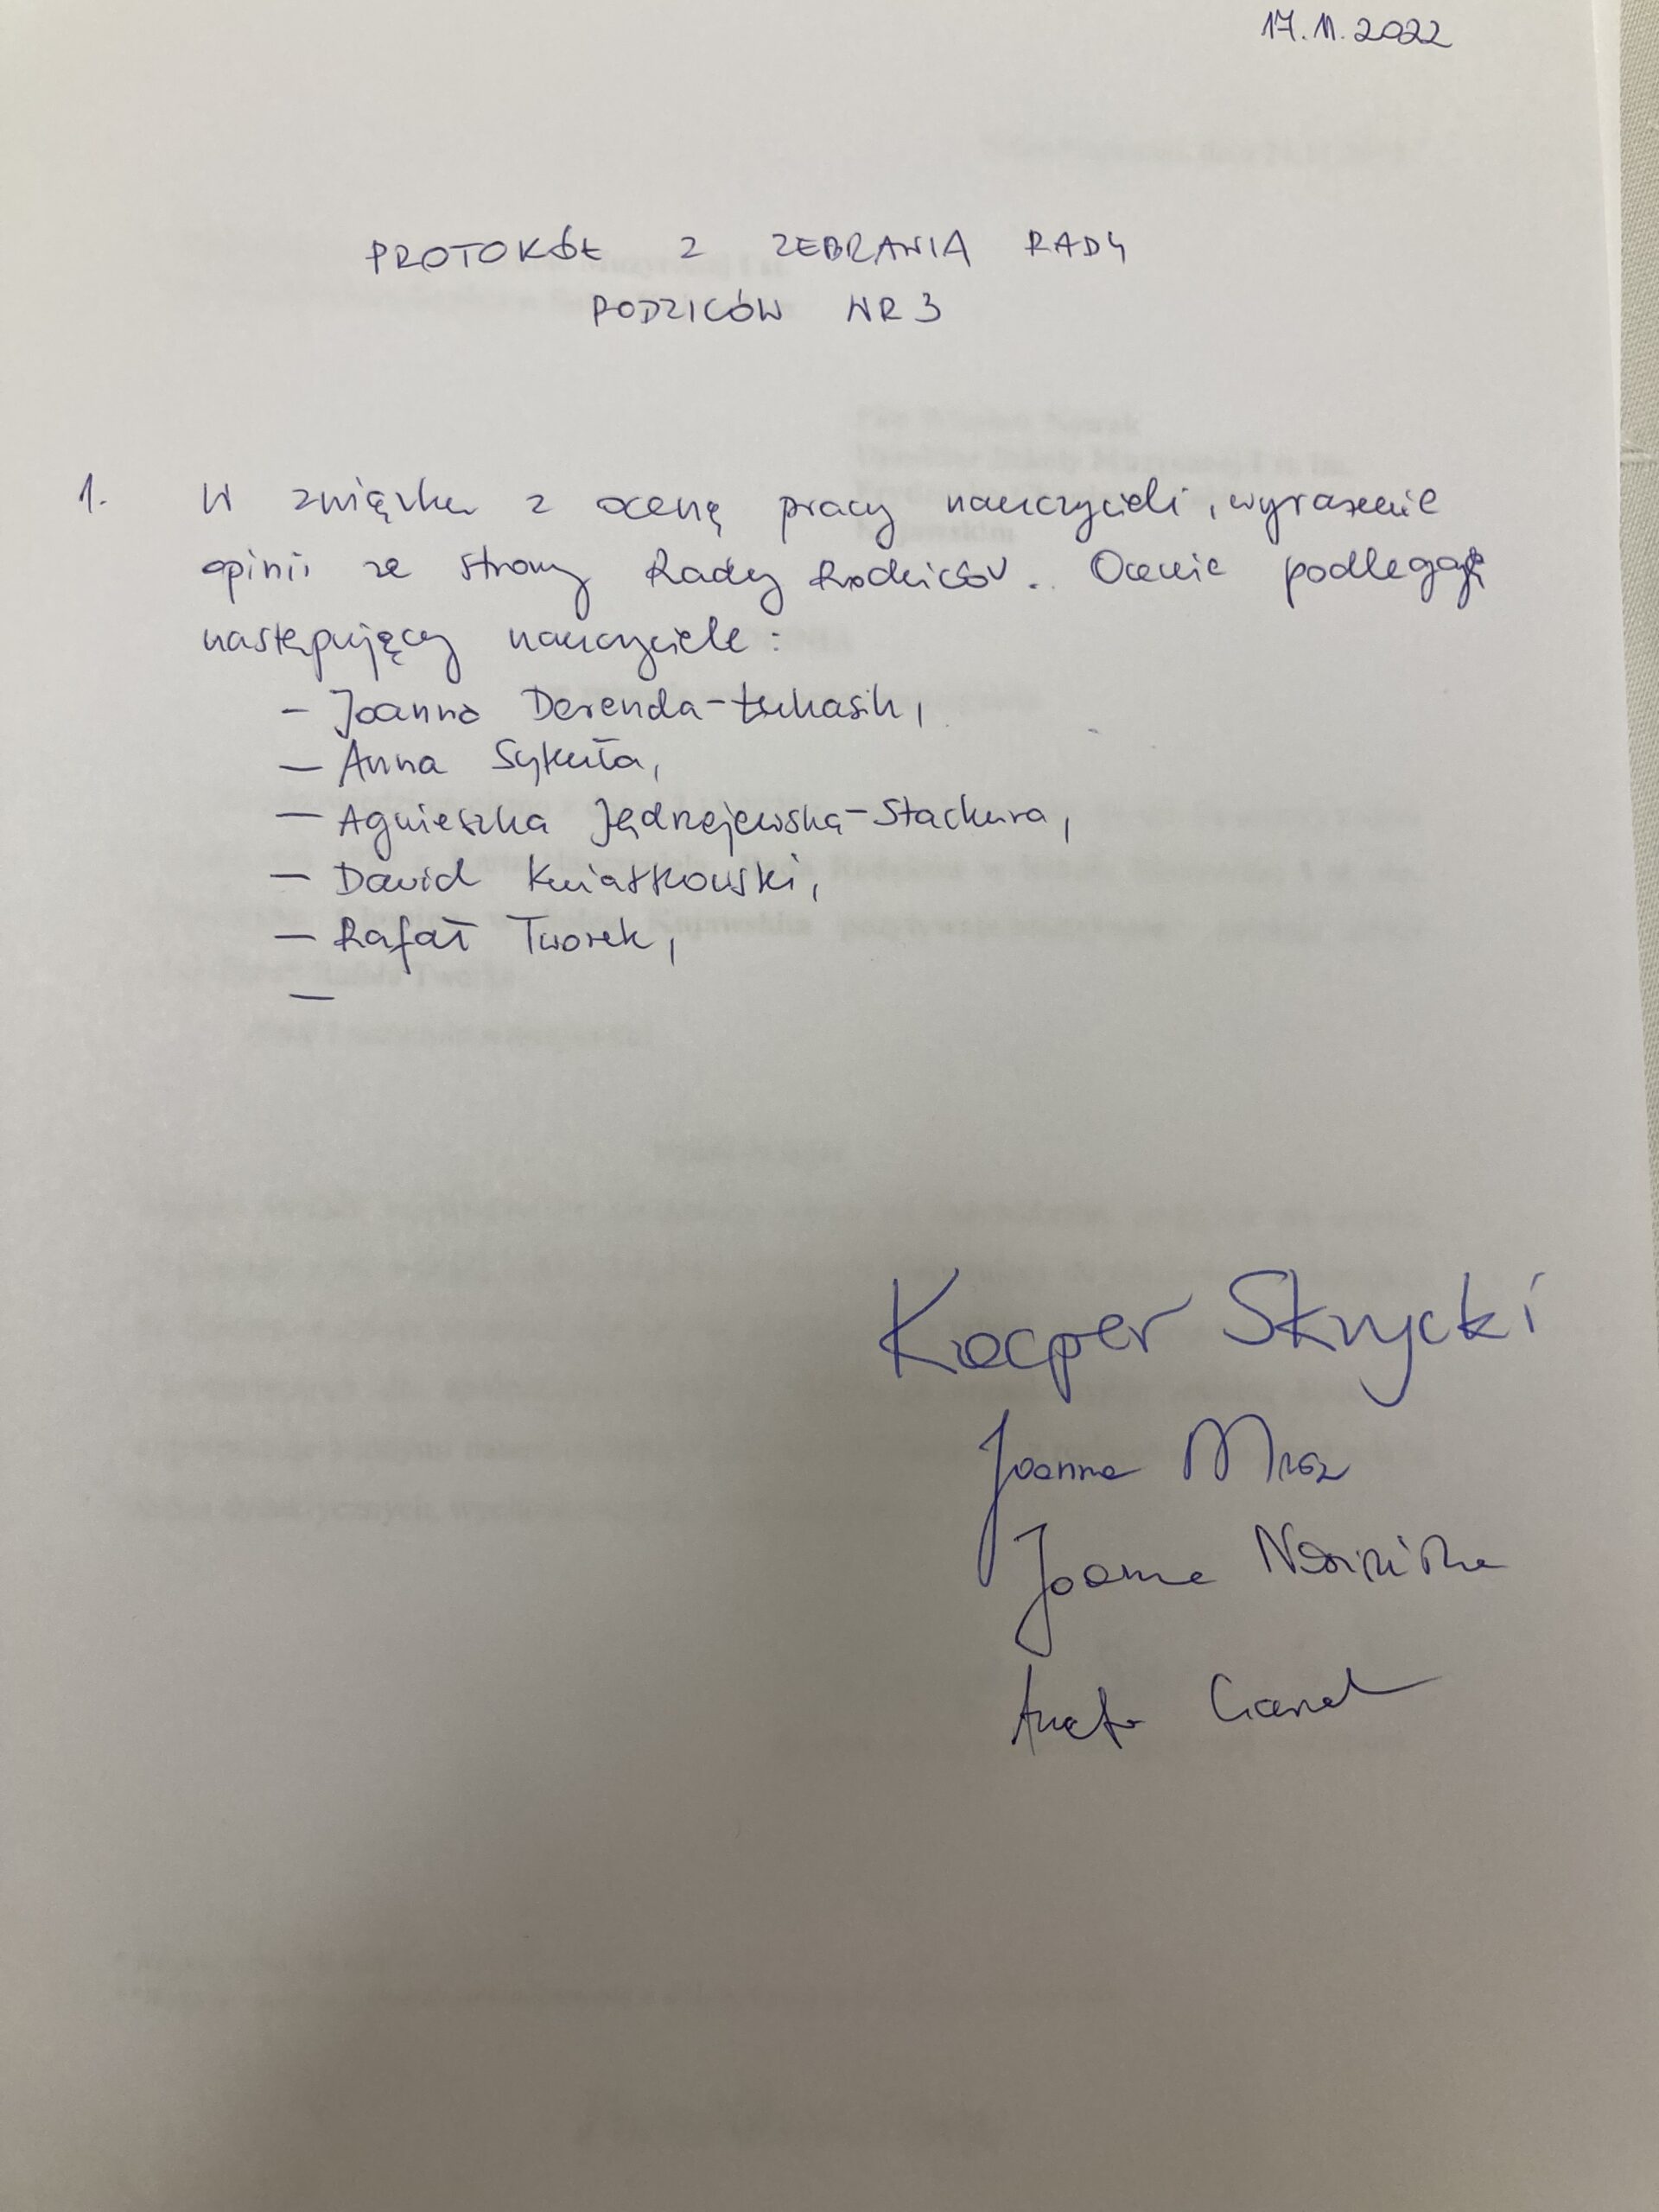 17.11.2022
PROTOKÓŁ Z ZEBRANIA RADY
RODZICÓW NR 3
1. W związku z oceną pracy nauczycieli, wyrażenie
opinii ze strony Rady Rodziców. Ocenie podlegają
następujący nauczyciele:
- Joanna Derenda-Łukasik,
- Anna Sykuła,
- Agnieszka Jędrzejewska-Stachura,
- Dawid Kwiatkowski,
- Rafał Tworek,
-
Kacper Skrycki
Joanna Mroz
Joanna
Aneta